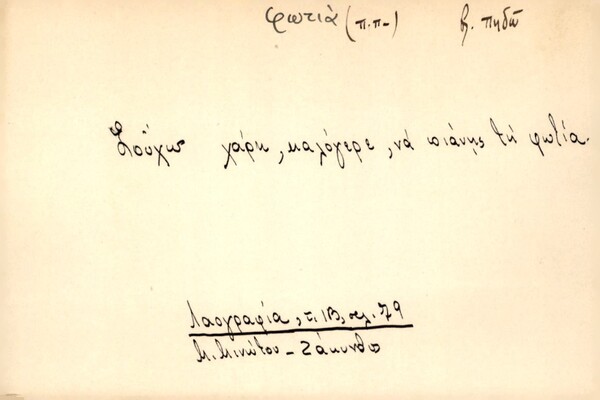 φωτιὰ (π.π-) β. πηδῶ
Σοὔχω χάρη, καλόγερε, νά πιάνῃς τή φωτία.
Λαογραφία, τ. ΙΒ, σελ. 79
Μ. Μινώτου - Ζάκυνθο